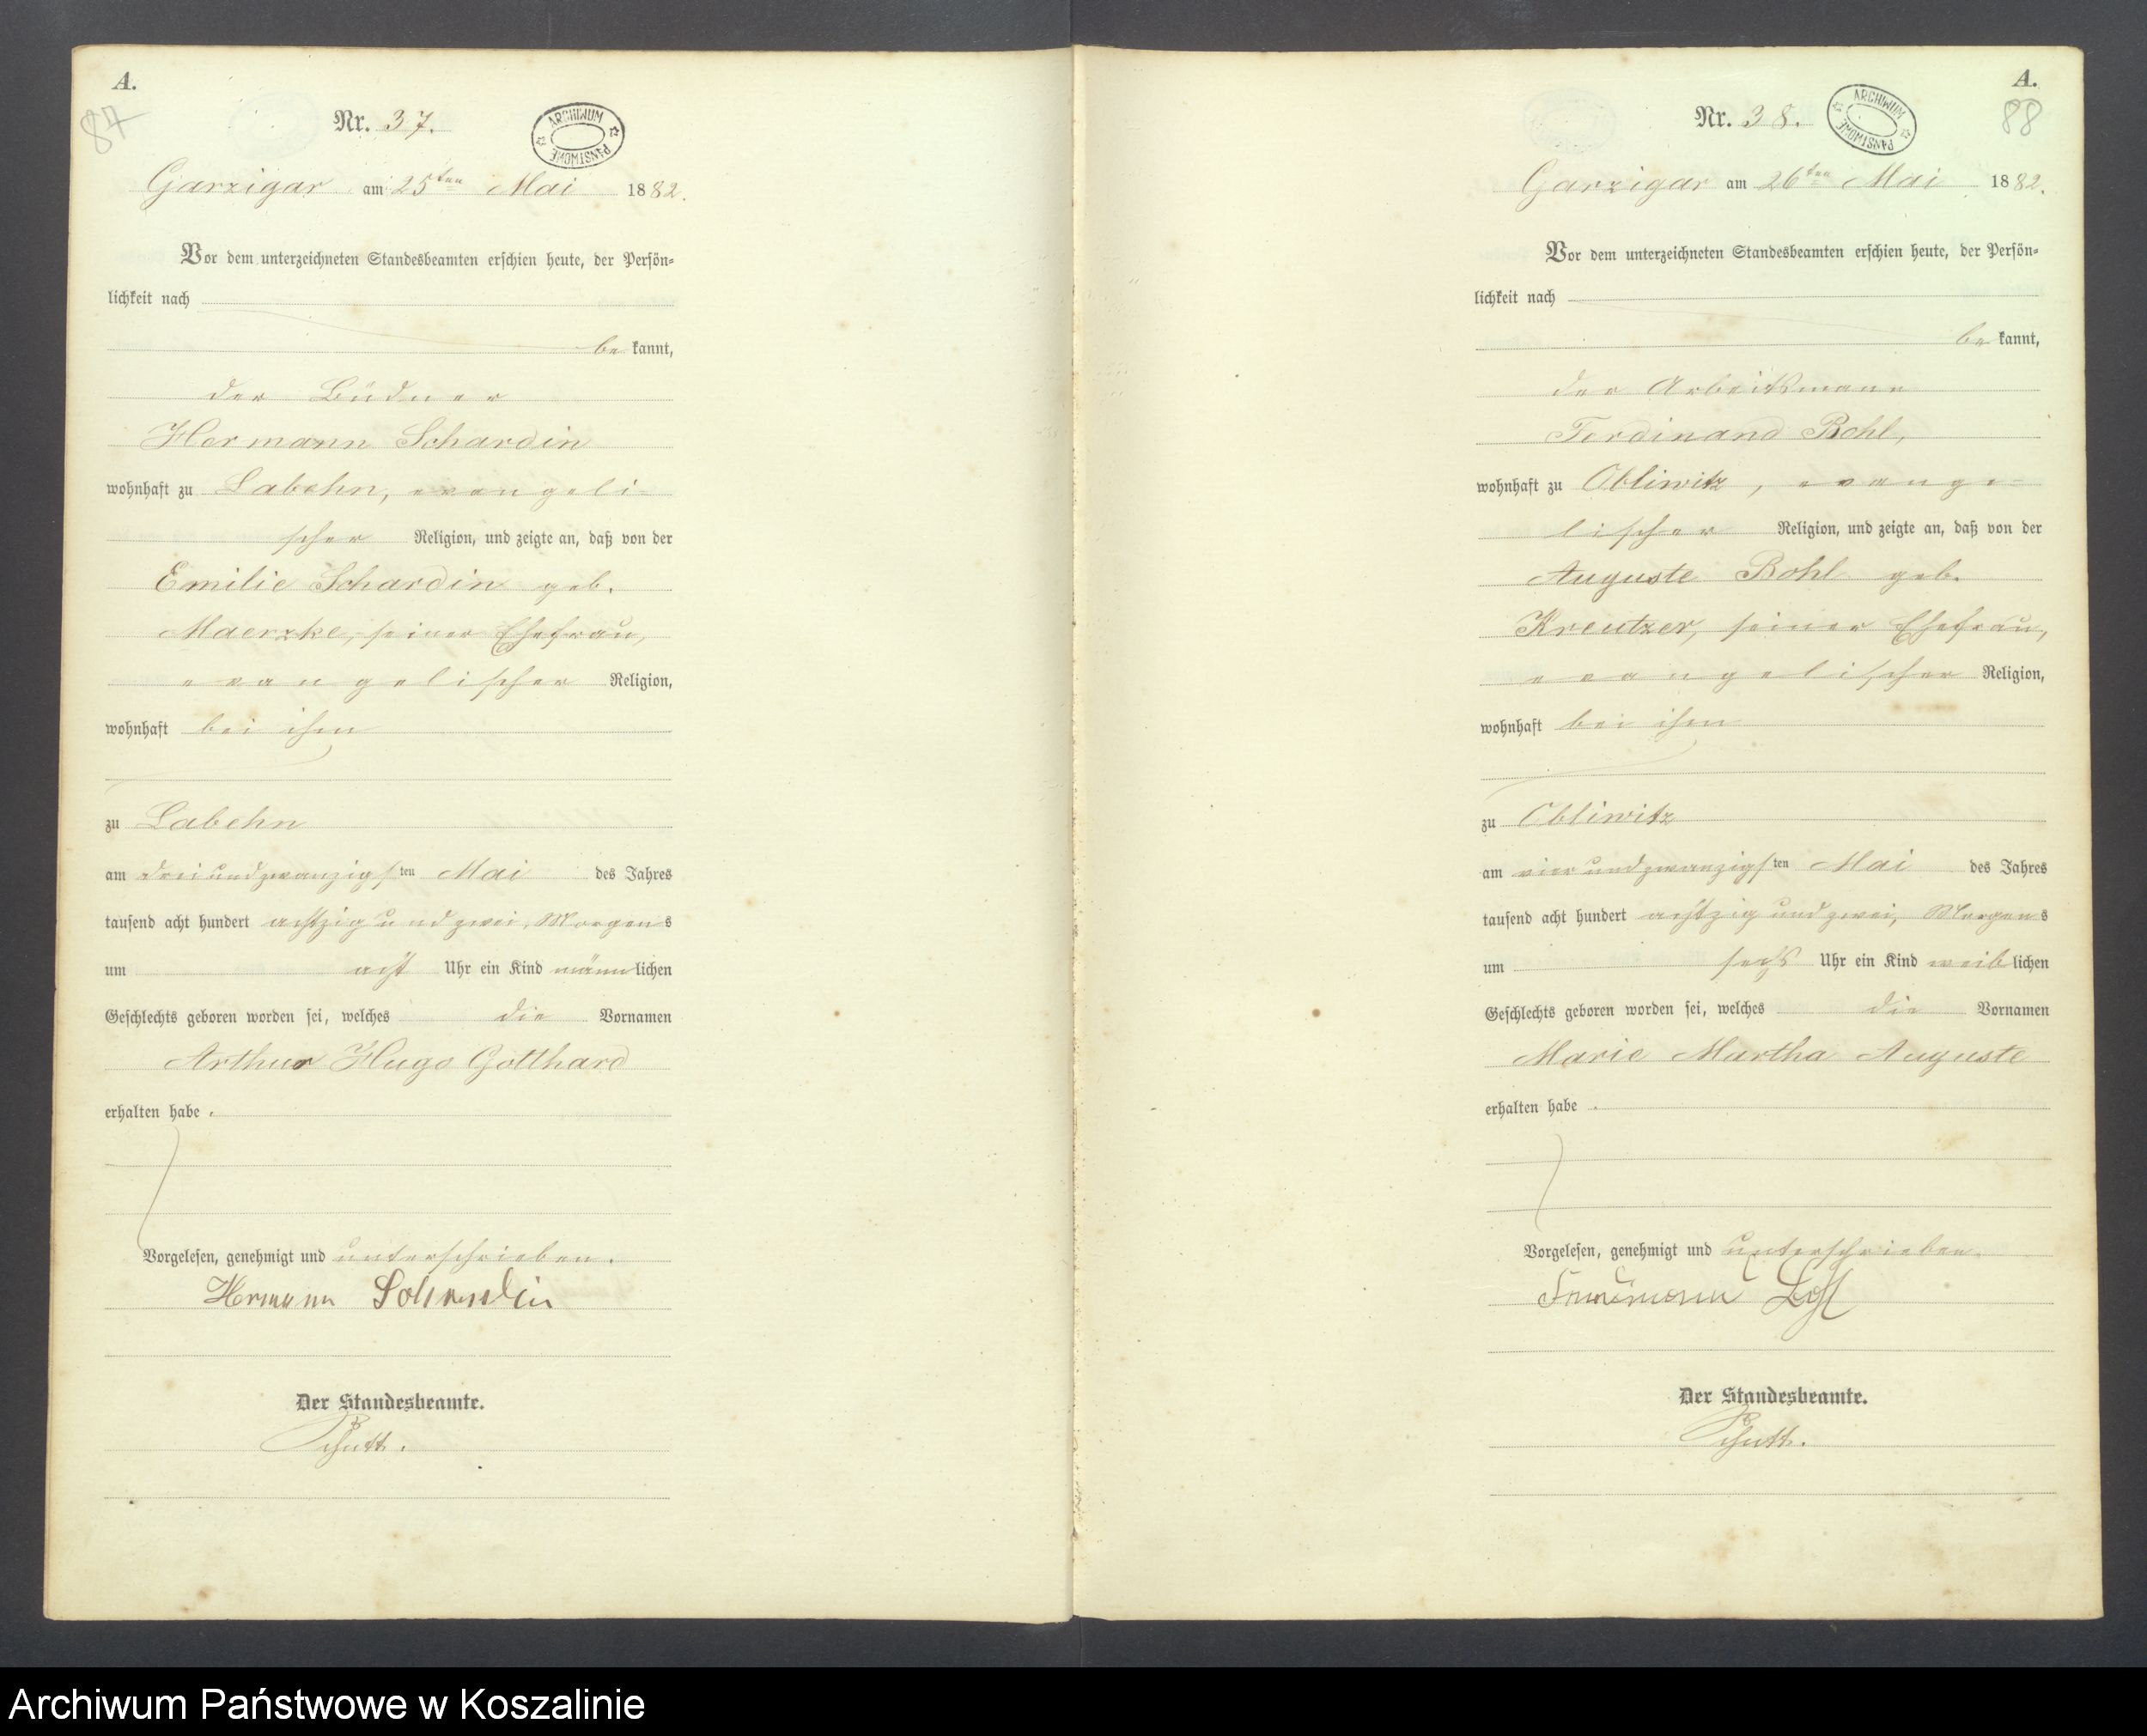 A.
87
Nr. 37.
ARCHIWUM PAŃSTWOWE
Garzigar am 25ten Mai 1882.
Vor dem unterzeichneten Standesbeamten erschien heute, der Persön-
lichkeit nach
be kannt,
der Büdner
Hermann Schardin
wohnhaft zu Labehn, evangeli-
scher Religion, und zeigte an, daß von der
Emilie Schardin geb.
Maerzke, seiner Ehefrau,
evangelischer Religion,
wohnhaft bei ihm
zu Labehn
am dreiundzwanzigsten Mai des Jahres
tausend acht hundert achtzig und zwei, Morgens
um acht Uhr ein Kind männlichen
Geschlechts geboren worden sei, welches die Vornamen
Arthur Hugo Gotthard
erhalten habe.
Vorgelesen, genehmigt und unterschrieben.
Hermann Schardin
Der Standesbeamte.
A.
88
Nr. 38.
ARCHIWUM PAŃSTWOWE
Garzigar am 26ten Mai 1882.
Vor dem unterzeichneten Standesbeamten erschien heute, der Persön-
lichkeit nach
be kannt,
der Arbeitsmann
Ferdinand Bohl,
wohnhaft zu Obliwitz, evange-
lischer Religion, und zeigte an, daß von der
Auguste Bohl geb.
Kreutzer, seiner Ehefrau,
evangelischer Religion,
wohnhaft bei ihm
zu Obliwitz
am vierundzwanzigsten Mai des Jahres
tausend acht hundert achtzig und zwei, Morgens
um sechs Uhr ein Kind weiblichen
Geschlechts geboren worden sei, welches die Vornamen
Marie Martha Auguste
erhalten habe.
Vorgelesen, genehmigt und unterschrieben.
Der Standesbeamte.
Archiwum Państwowe w Koszalinie